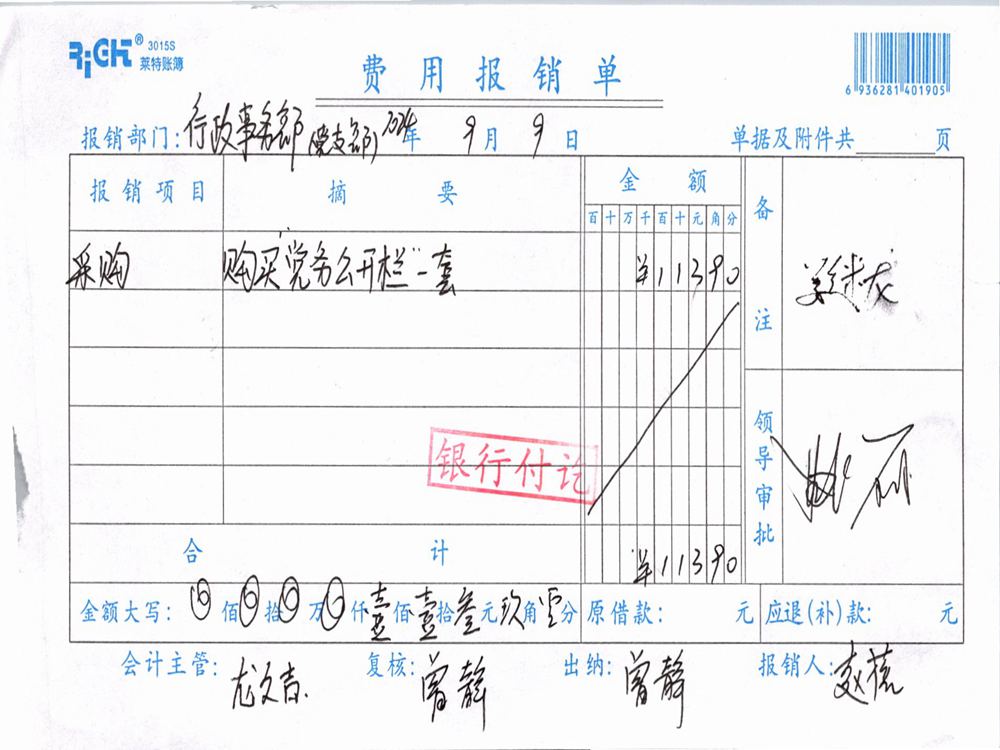 RiGHT® 3015S
莱特账簿
费用报销单
6 936281 401905
报销部门:行政事务部(党支部) 2024年 9月 9日 单据及附件共 页
报销项目 摘要 金额 备注
百十万千百十元角分
采购 购买"党务公开栏"一套 ¥11390
领导审批
银行付讫
合计 ¥11390
金额大写: 佰 拾 万 仟壹佰壹拾叁元玖角零分 原借款: 元 应退(补)款: 元
会计主管:尤文吉 复核:曾静 出纳:曾静 报销人:赵蕊